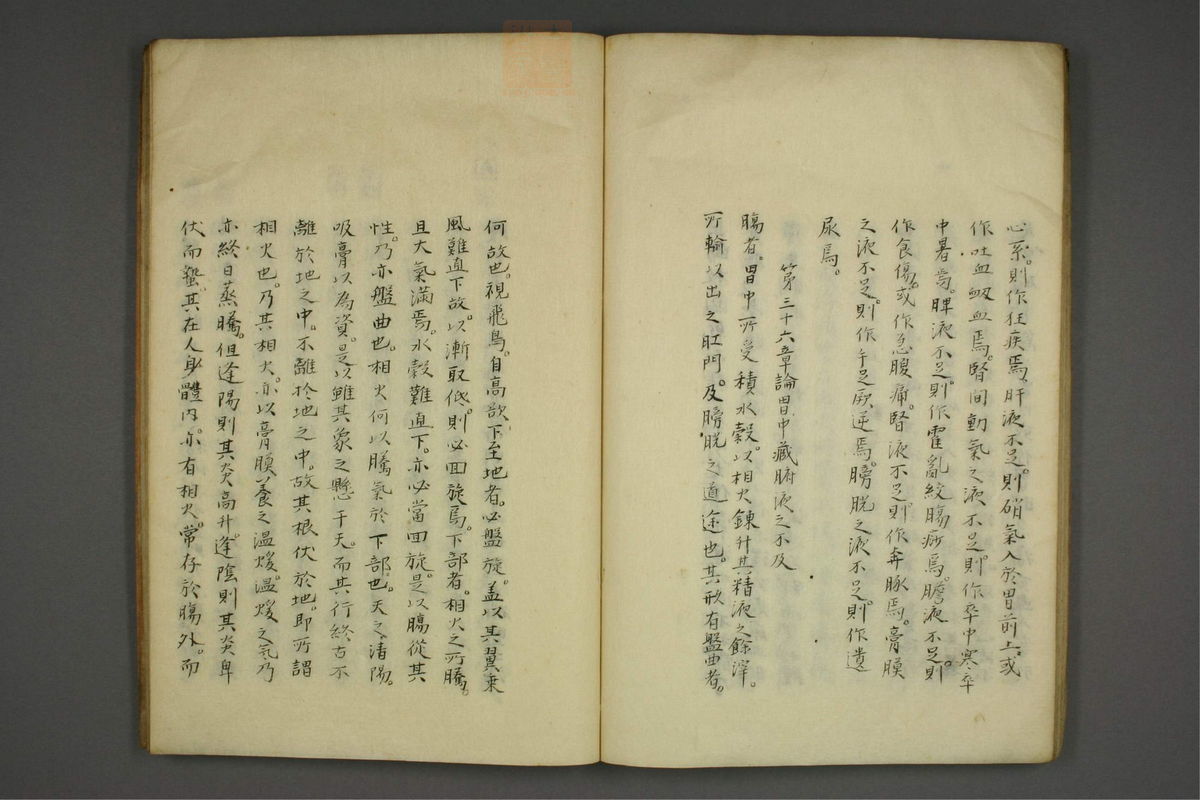 心系。則作狂疾焉。肝液不足。則硝氣入於胃前上。或
作吐血衂血焉。腎間動氣之液不足。則作卒中寒。卒
中暑焉。脾液不足。則作霍亂絞腸痧焉。膽液不足。則
作食傷。或作急腹痛。腎液不足。則作奔豚焉。膏膜
之液不足。則作手足厥逆焉。膀胱之液不足。則作遺
尿焉。
第三十六章論胃中藏腑液之不及
腸者。胃中所受積水穀。以相火錬升其精液之餘滓。
所輸以出之肛門。及膀胱之道途也。其形有盤曲者。
何故也。視飛鳥。自高欲下至地者。必盤旋。蓋以其翼乗
風難直下故。以漸取低。則必回旋焉。下部者。相火之所騰。
且大氣滿焉。水穀難直下。亦必當回旋。是以腸從其
性。乃亦盤曲也。相火何以騰氣於下部也。天之清陽。
吸膏以為資。是以雖其象之懸于天。而其行終古不
離於地之中。不離於地之中。故其根伏於地。即所謂
相火也。乃其相火。亦以膏膜養之温煖。温煖之氣乃
亦終日蒸騰。但逢陽則其炎高升。逢陰則其炎卑
伏而蟄。其在人身體内。亦有相火。常存於腸外。而